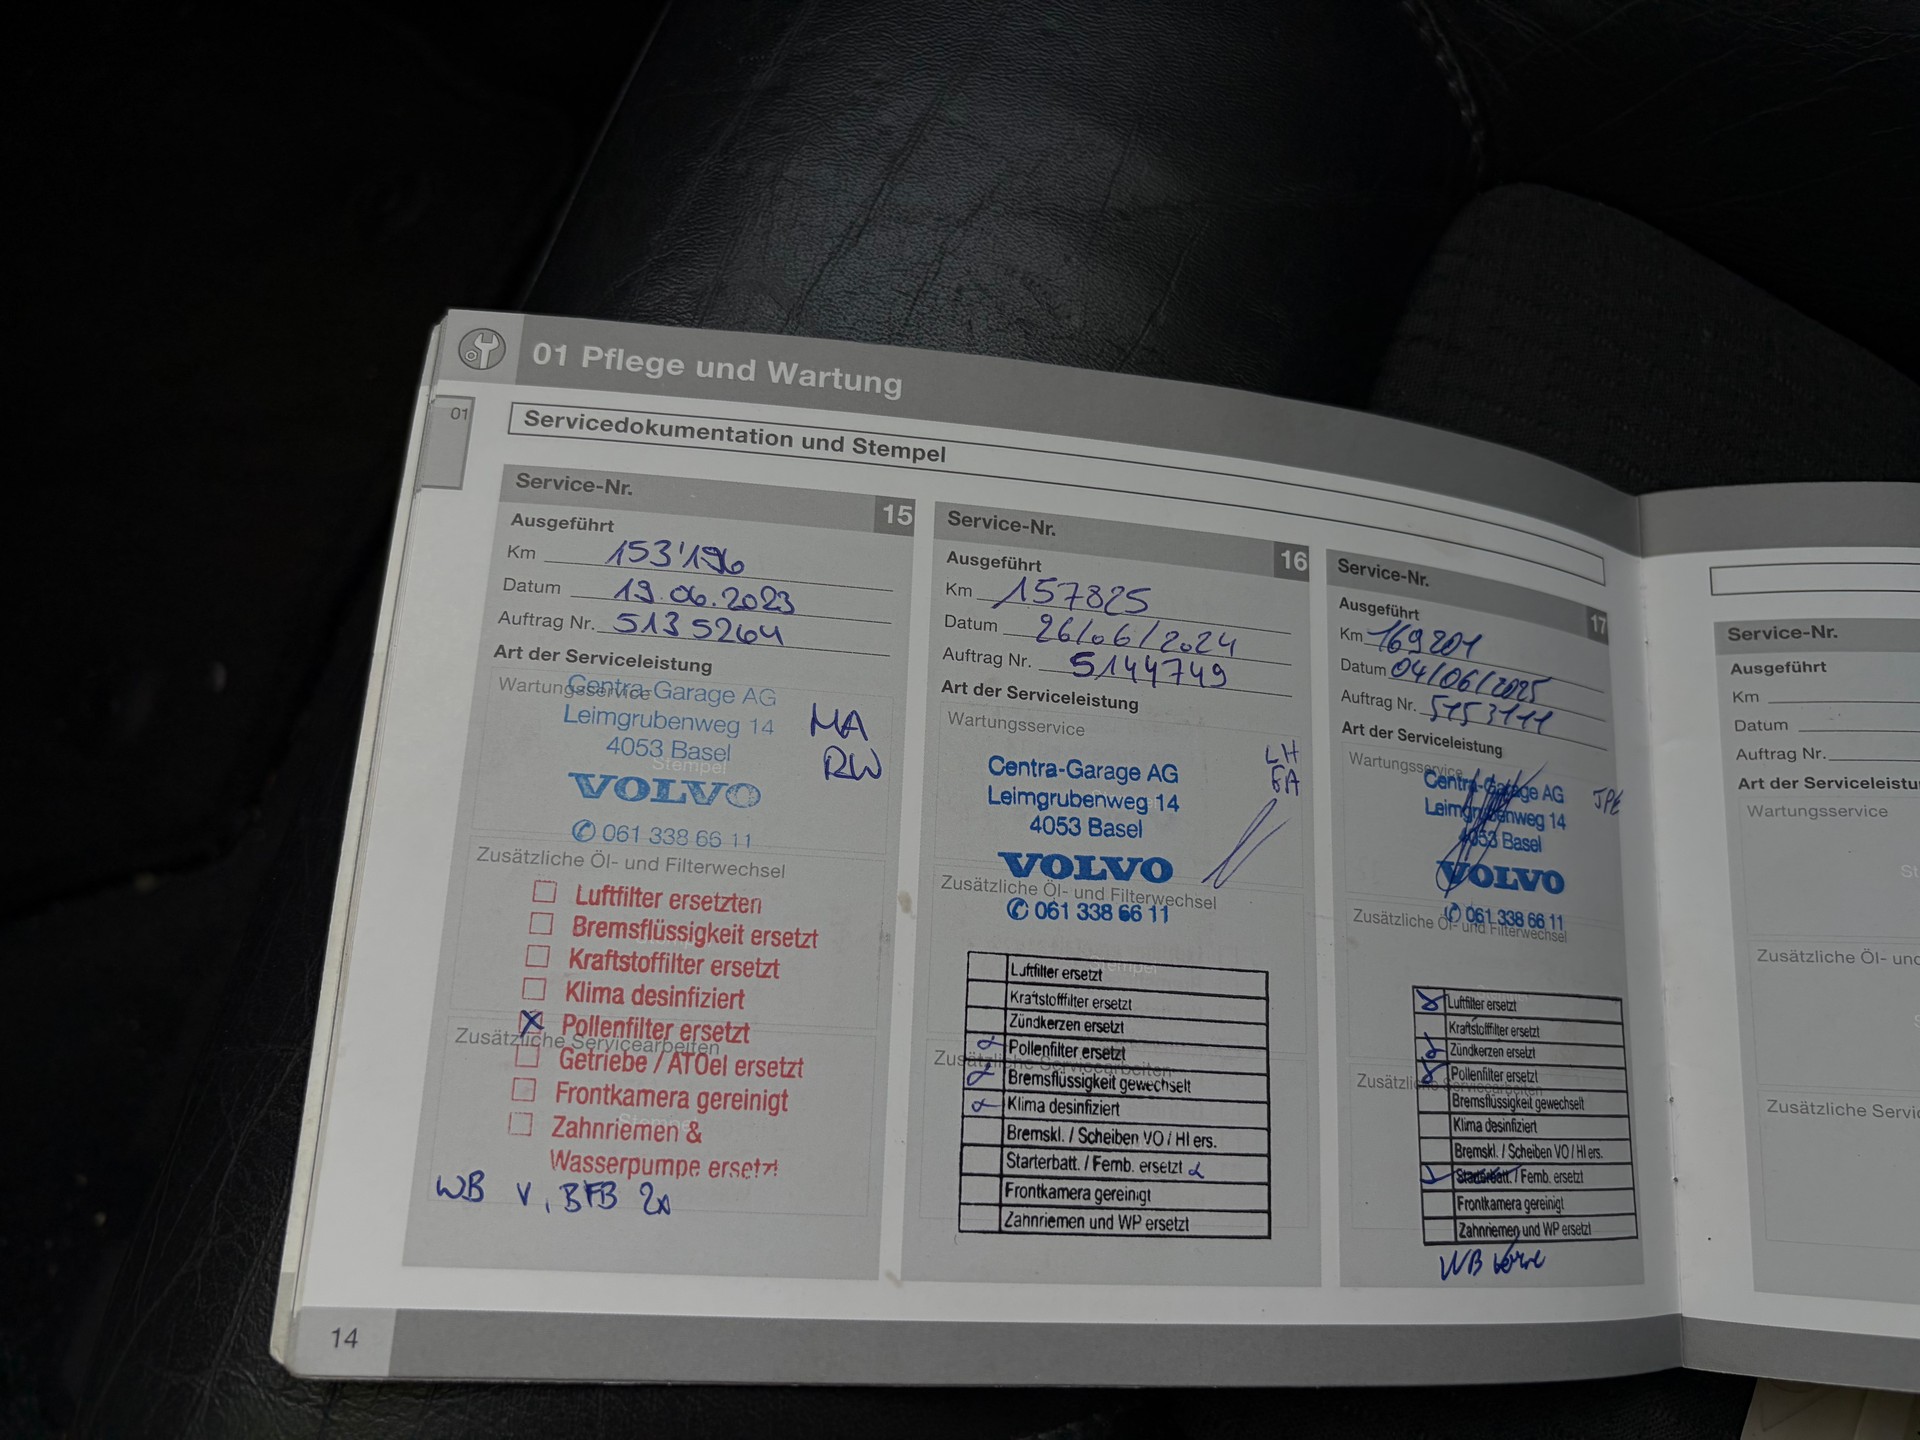 01 Pflege und Wartung
01
Servicedokumentation und Stempel
Service-Nr. 15
Ausgeführt
Km 153'196
Datum 19.06.2023
Auftrag Nr. 5135264
Art der Serviceleistung
Wartungsservice
Centra-Garage AG
Leimgrubenweg 14
4053 Basel
Stempel
VOLVO
✆ 061 338 66 11
MA
RW
Zusätzliche Öl- und Filterwechsel
Luftfilter ersetzten
Bremsflüssigkeit ersetzt
Kraftstoffilter ersetzt
Klima desinfiziert
Pollenfilter ersetzt
Zusätzliche Servicearbeiten
Getriebe / ATOel ersetzt
Frontkamera gereinigt
Zahnriemen &
Wasserpumpe ersetzt
WB V, BFB 2x
Service-Nr. 16
Ausgeführt
Km 157825
Datum 26/06/2024
Auftrag Nr. 5144749
Art der Serviceleistung
Wartungsservice
Centra-Garage AG
Leimgrubenweg 14
4053 Basel
VOLVO
LH
Zusätzliche Öl- und Filterwechsel
✆ 061 338 66 11
Stempel
Luftfilter ersetzt
Kraftstofffilter ersetzt
Zündkerzen ersetzt
Pollenfilter ersetzt
Zusätzliche Servicearbeiten
Bremsflüssigkeit gewechselt
Klima desinfiziert
Bremskl. / Scheiben VO / HI ers.
Starterbatt. / Fernb. ersetzt
Frontkamera gereinigt
Zahnriemen und WP ersetzt
Service-Nr. 17
Ausgeführt
Km 169201
Datum 04/06/2025
Auftrag Nr. 5153111
Art der Serviceleistung
Wartungsservice
Centra-Garage AG
Leimgrubenweg 14
4053 Basel
VOLVO
✆ 061 338 66 11
Zusätzliche Öl- und Filterwechsel
Luftfilter ersetzt
Kraftstofffilter ersetzt
Zündkerzen ersetzt
Pollenfilter ersetzt
Zusätzliche Servicearbeiten
Bremsflüssigkeit gewechselt
Klima desinfiziert
Bremskl. / Scheiben VO / HI ers.
Starterbatt. / Fernb. ersetzt
Frontkamera gereinigt
Zahnriemen und WP ersetzt
WB vorne
14
Service-Nr.
Ausgeführt
Km
Datum
Auftrag Nr.
Art der Serviceleistu
Wartungsservice
St
Zusätzliche Öl- unc
Zusätzliche Servic